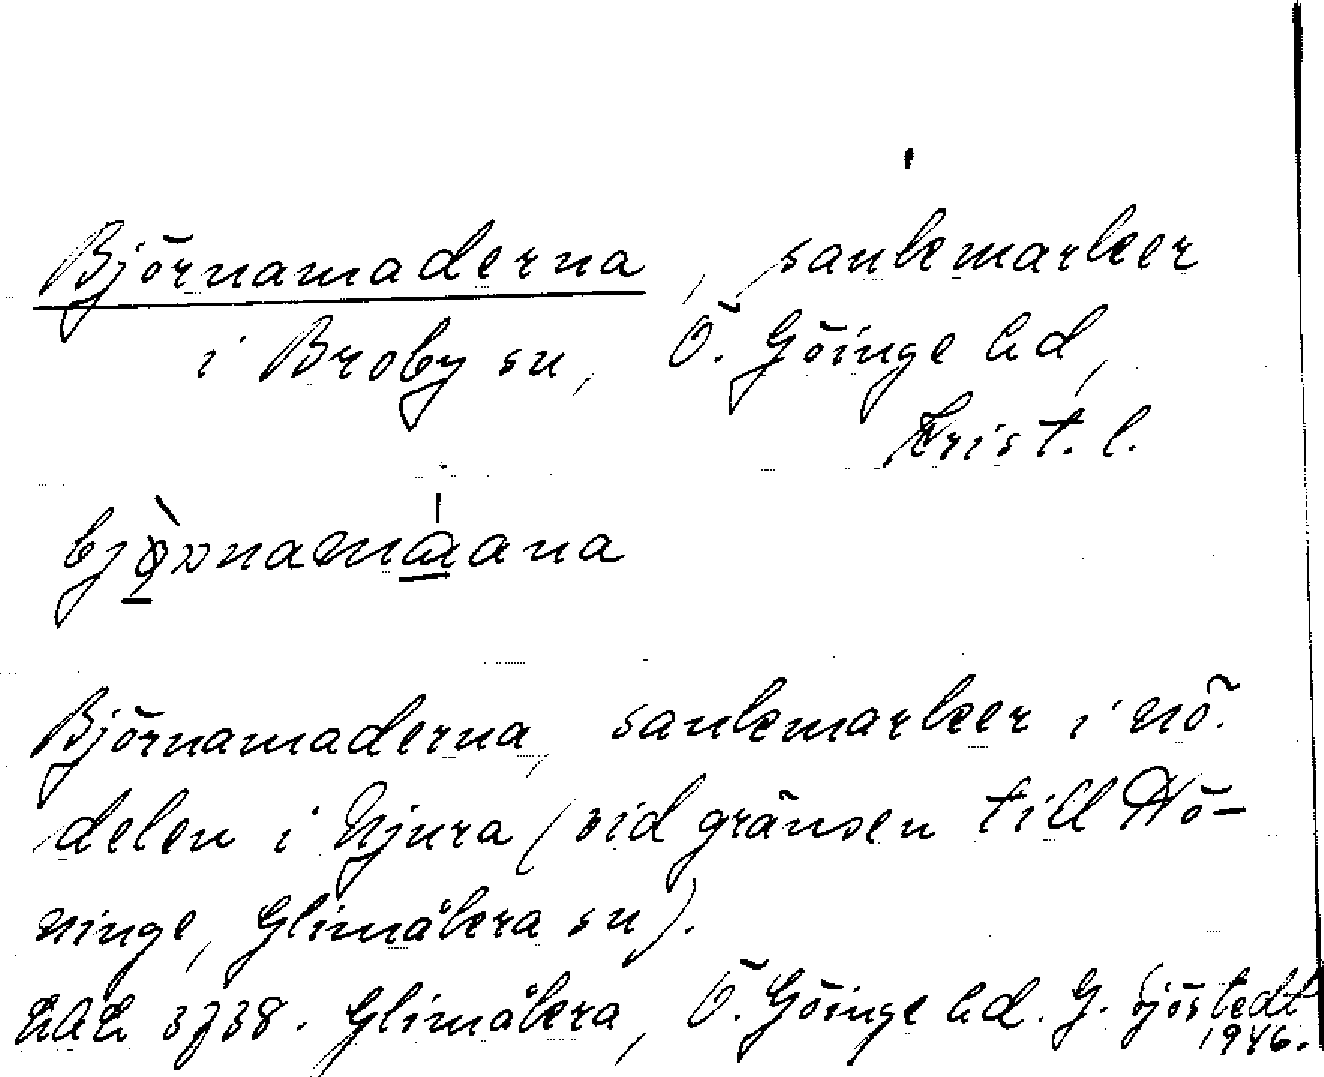 Björnamaderna, sankmarker
i Broby sn, Ö. Göinge hd,
Krist. l.
Björnamaderna, sankmarker i nö.
delen i Njura (vid gränsen till Dö-
ninge, Glimåkra sn).
3738. Glimåkra, Ö. Göinge hd. G. Sjöstedt
1946.